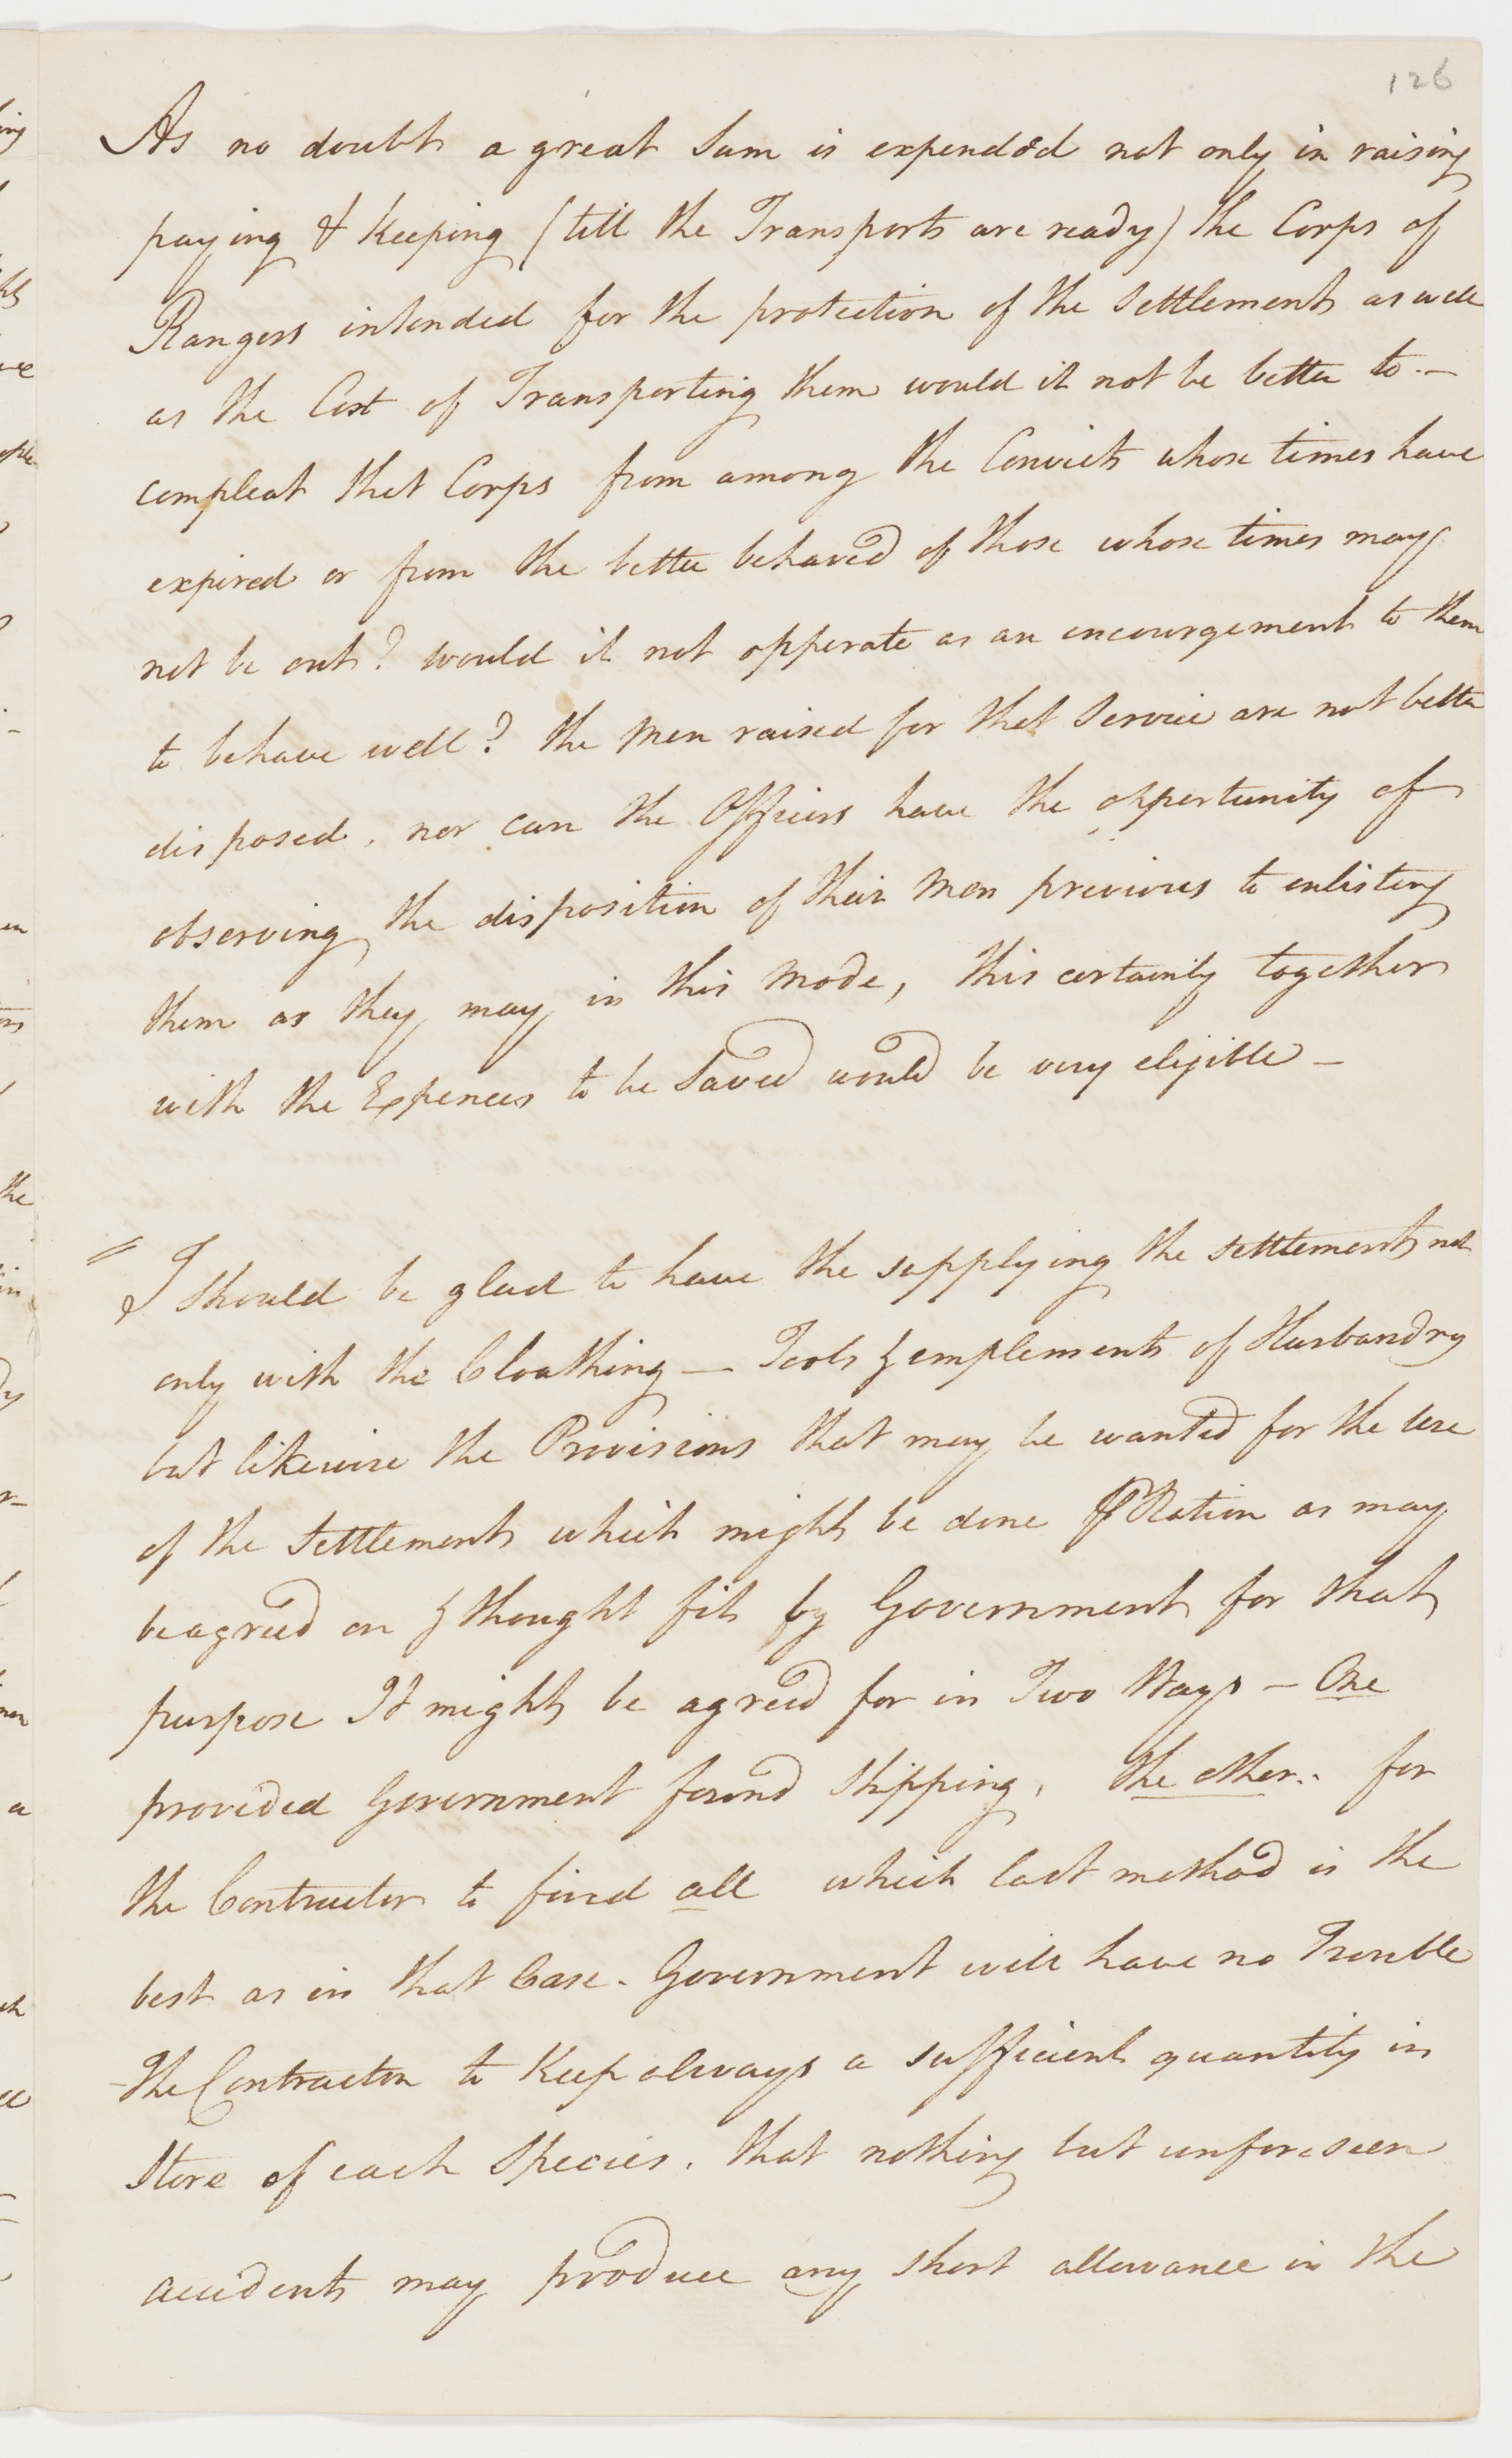 126
As no doubt a great Sum is expended not only in raising
paying & Keeping (till the Transports are ready) the Corps of
Rangers intended for the protection of the Settlement as well
as the Cost of Transporting them would it not be better to. —
compleat that Corps from among the Convicts whose times have
expired or from the better behaved of those whose times may
not be out? would it not opperate as an encourgement to them
to behave well? the Men raised for that Service are not better
disposed, nor can the Officers have the opportunity of
observing the disposition of their Men previous to enlisting
them as they may in this Mode, this certainly together
with the Expences to be Saved would be very eligible —
" I Should be glad to have the supplying the Settlement not
only with the Cloathing — Tools & emplements of Husbandry
but likewise the Provisions that may be wanted for the Use
of the Settlement which might be done ⅌ Ration as may
be agreed on & thought fit by Government for that
purpose It might be agreed for in Two Ways — One
provided Government found Shipping, the other. for
the Contractor to find all which last method is the
best as in that Case. Government will have no Trouble
- The Contractor to Keep always a sufficient quantity in
Store of each Species. that nothing but unforeseen
accidents may produce any short allowance in the